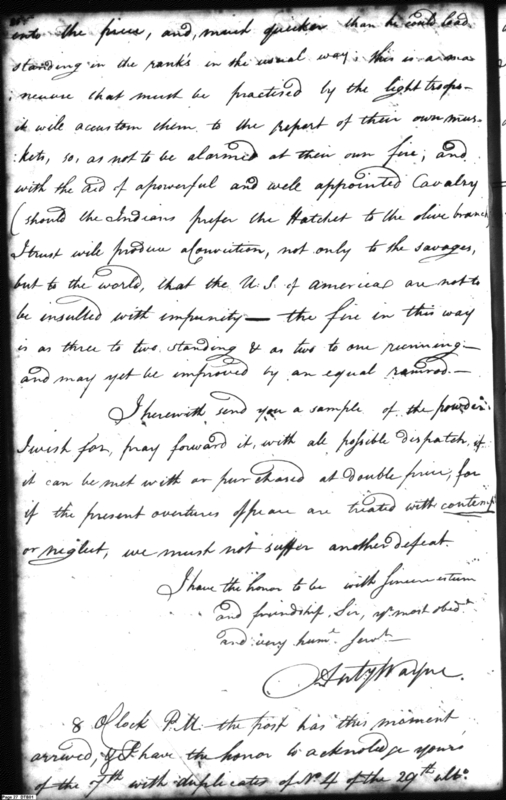 into the piece, and, much quicker than he could load
standing in the ranks in the usual way; this is a ma
neuvre that must be practised by the light troops—
it will accustom them to the report of their own mus-
kets, so, as not to be alarmed at their own fire; and
with the aid of a powerful and well appointed Cavalry
(should the Indians prefer the Hatchet to the olive branch)
I trust will produce a Conviction, not only to the savages,
but to the world, that the U.S. of America are not to
be insulted with impunity— the fire in this way
is as three to two standing & as two to one running—
and may yet be improved by an equal ramrod.—
I herewith send you a sample of the powder
I wish for, pray forward it, with all possible dispatch, if
it can be met with or purchased at double price; for
if the present overtures of peace are treated with contempt
or neglect, we must not suffer another defeat
I have the honor to be with sincere esteem
and friendship Sir, yr. most obedt.
and very humt. Servt.—
Anty Wayne.
8 OClock P.M. the post has this moment
arrived, & I have the honor to acknoledge yours
of the 7th with duplicates of No. 4 of the 29th ulto.
Page 27 SY801